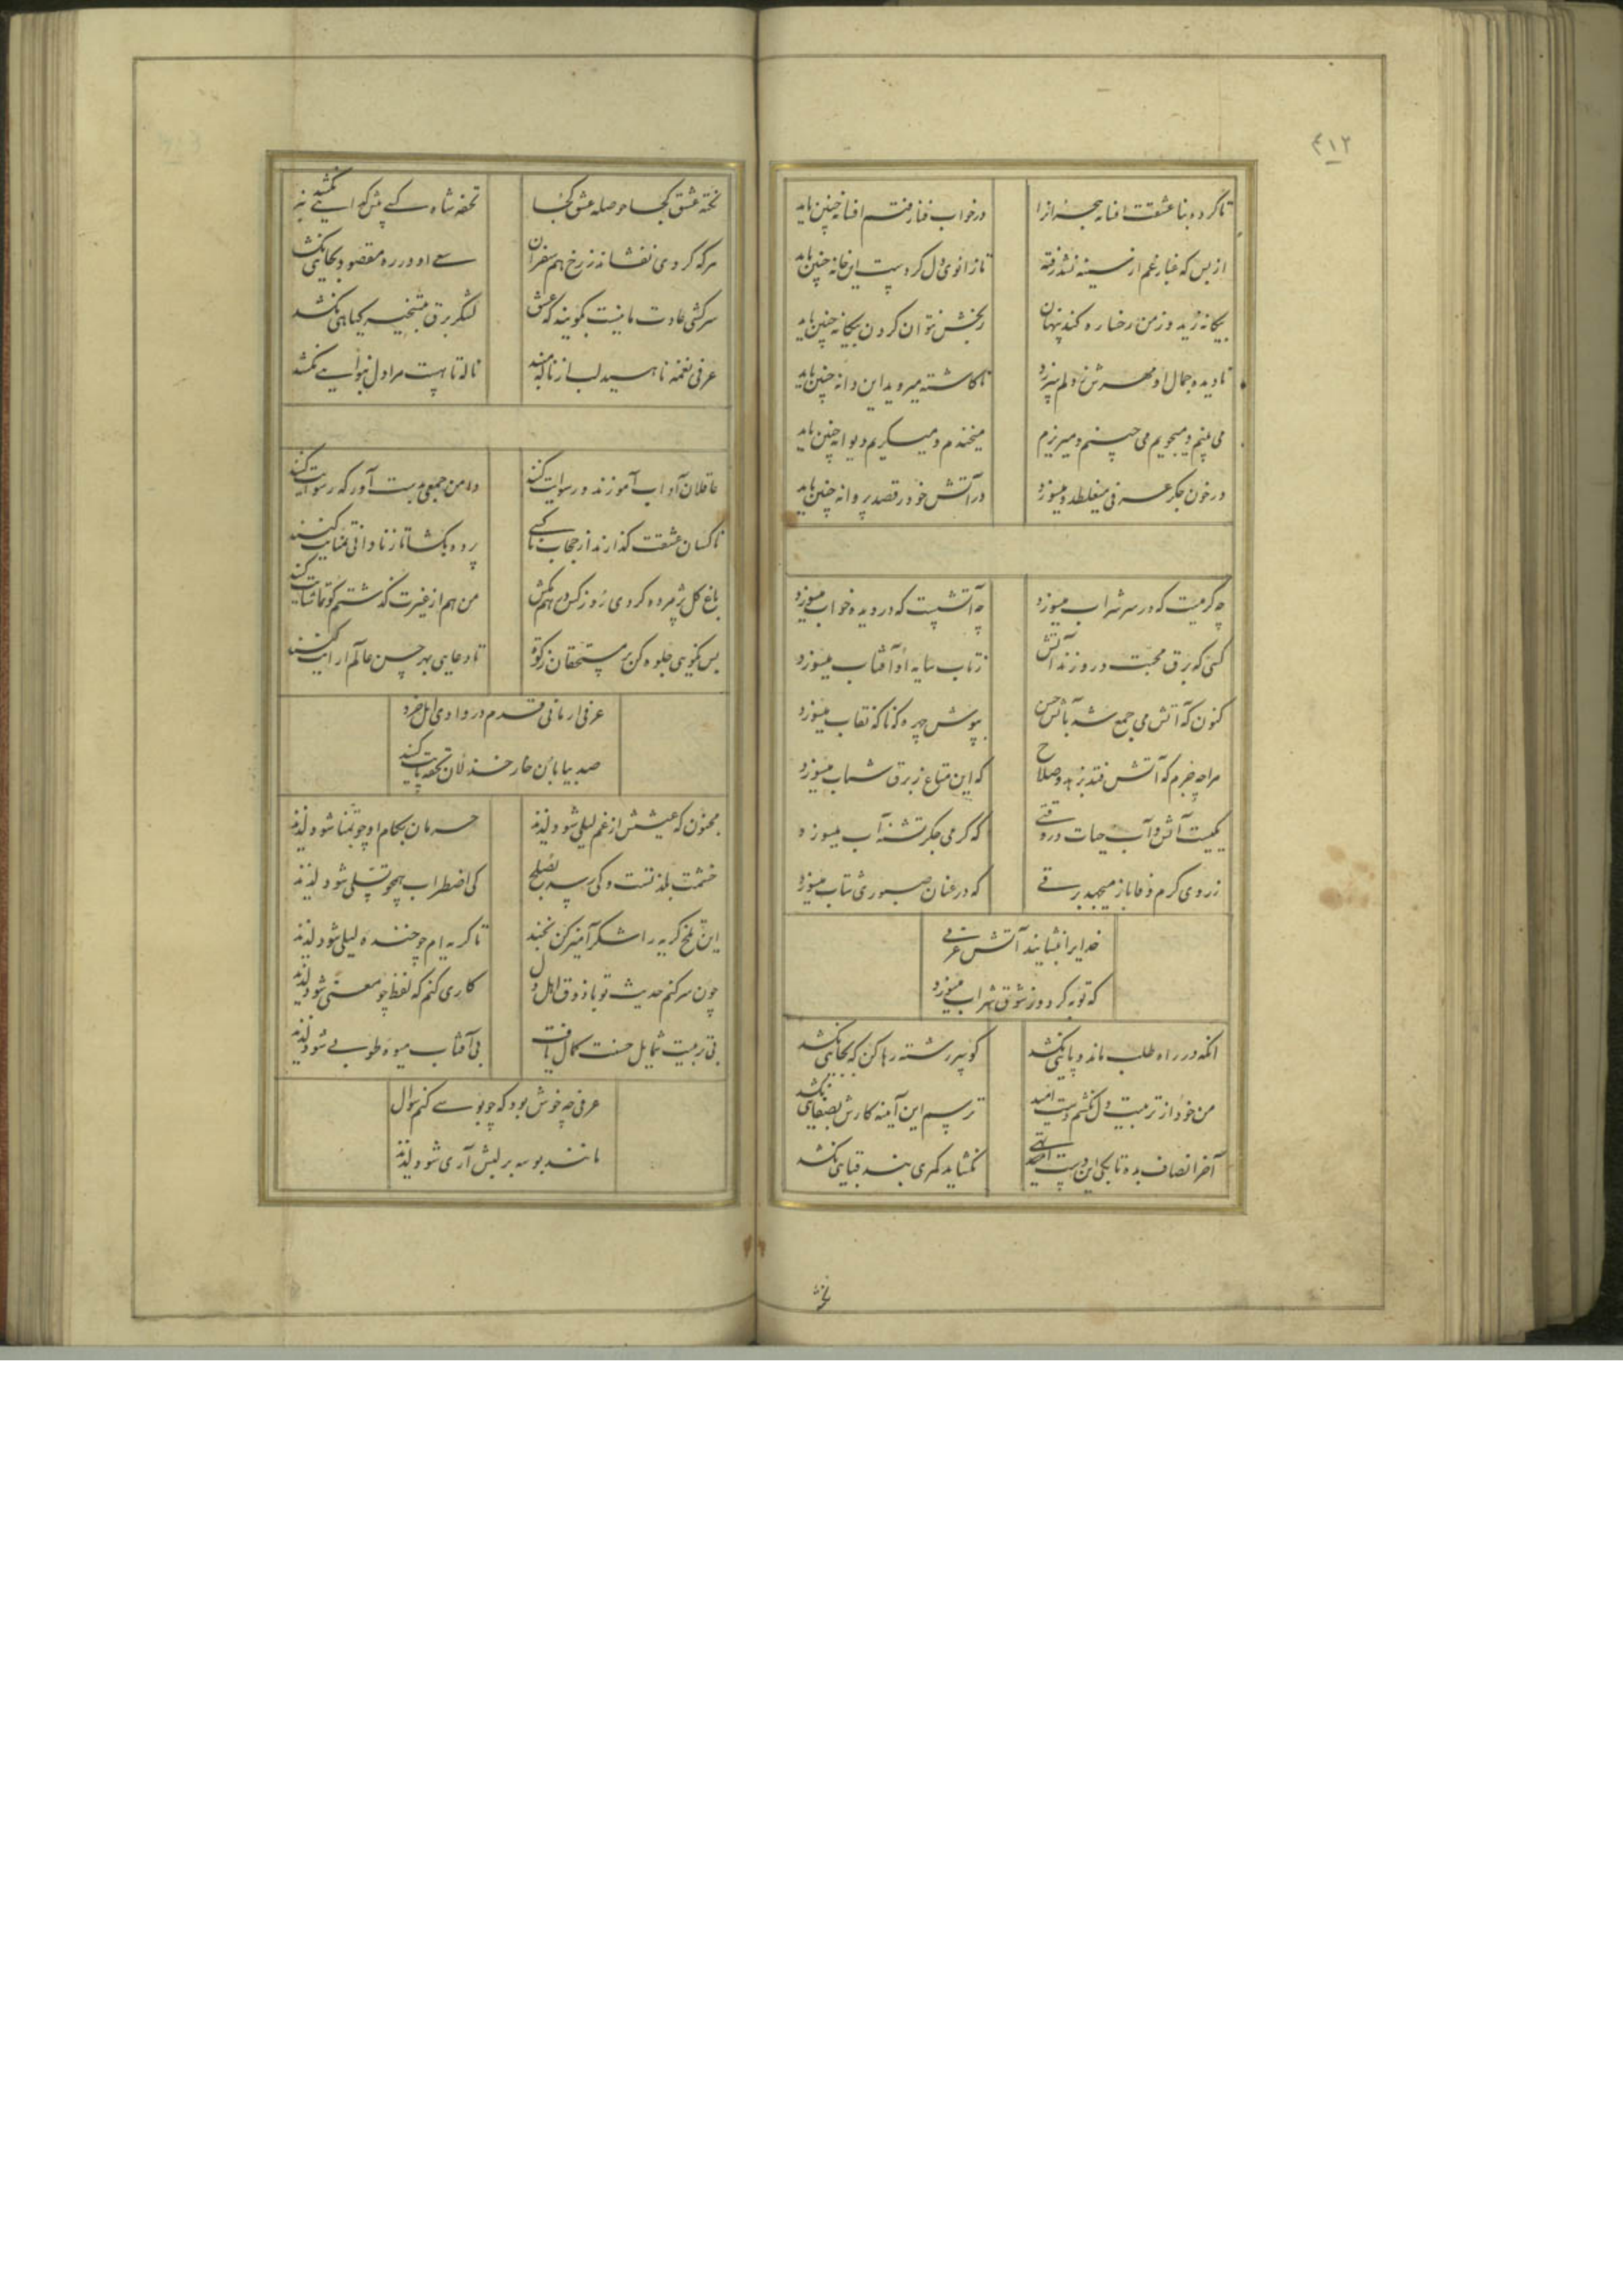 ٤١٢
تا کرده بنا عشقت افسانه هجر از ما
در خواب فنا رفتم افسانه چنین باید
از بس که غبار غم از سینه نشد رفته
تا زانوی دل گردست این خانه چنین باید
بیگانه زید و ز من رخساره کند پنهان
رنجش نتوان کردن بیگانه چنین باید
نادیده جمال او مهرش ز دلم سر زد
ناکاشته میروید این دانه چنین باید
می بینم و میجویم می چینم و میریزم
میخندم و میگریم دیوانه چنین باید
در خون جگر عرفی میغلطد و میسوزد
در آتش خود رقصد پروانه چنین باید
چه گرمیست که در سر شراب میسوزد
چه آتشیست که در دیده خواب میسوزد
کسی که برق محبت درو زند آتش
ز تاب سایه او آفتاب میسوزد
کنون که آتش می جمع شد بآتش حسن
بپوش چهره که ناگه نقاب میسوزد
مرا چه جرم که آتش فتد بزهد و صلاح
که این متاع ز برق شباب میسوزد
یکیست آتش و آب حیات در وقتی
که گرمی جگر تشنه آب میسوزد
ز روی گرم وفا باز میجهد برقی
که در عنان صبوری شتاب میسوزد
خدایرا بنشانید آتش عرفی
که توبه کرد و ز شوق شراب میسوزد
آنکه در راه طلب ماند و پائی نکشد
گو سر رشته رها کن که بجائی نکشد
من خود از تربیت دل نکشم دست امید
ترسم این آینه کارش بصفائی نکشد
آخر انصاف بده تا بکی این دست امید
نگشاید کمری بند قبائی نکشد
تحفه عشق کجا حوصله عشق کجا
تحفه شاه کسی پیش گدایی نکشد
هر که گردی نفشاند ز رخ همسفران
سعی او در ره مقصود بجائی نکشد
سرکشی عادت ما نیست بگویید که عشق
لشکر برق بتسخیر گیاهی نکشد
عرفی نغمه ناهید لب از ناله مبند
ناله تا هست مرا دل بنوایی نکشد
عاقلان آداب آموزند و رسوایت کنند
دامن جمعی بدست آور که رسوایت کنند
ناکسان عشقت گذارند از حجاب ناکسی
پرده بگشا تا ز نادانی تمنایت کنند
باغ گل پژمرده کردی رو ز کس در هم مکش
من هم از غیرت گذشتم گو تماشایت کنند
بس نکویی جلوه کن بر مستحقان زکوة
تا دعایی بهر حسن عالم آرایت کنند
عرفی ار مانی قدم در وادی اهل خرد
صد بیابان خار خذلان تحفه پایت کنند
مجنون که عیشش از غم لیلی شود لذیذ
حرمان بکام او چو تمنا شود لذیذ
خشمت بلذتست و کی رسد بصلح
کی اضطراب همچو تسلی شود لذیذ
این تلخ گریه را شکر آمیز کن بخند
تا گریه ام چو خنده لیلی شود لذیذ
چون سر کنم حدیث تو با ذوق اهل دل
کاری کنم که لفظ چو معنی شود لذیذ
بی تربیت شمایل حسنت کمال یافت
بی آفتاب میوه طوبی شود لذیذ
عرفی چه خوش بود که چو بوسی کنم سوال
مانند بوسه بر لبش آری شود لذیذ